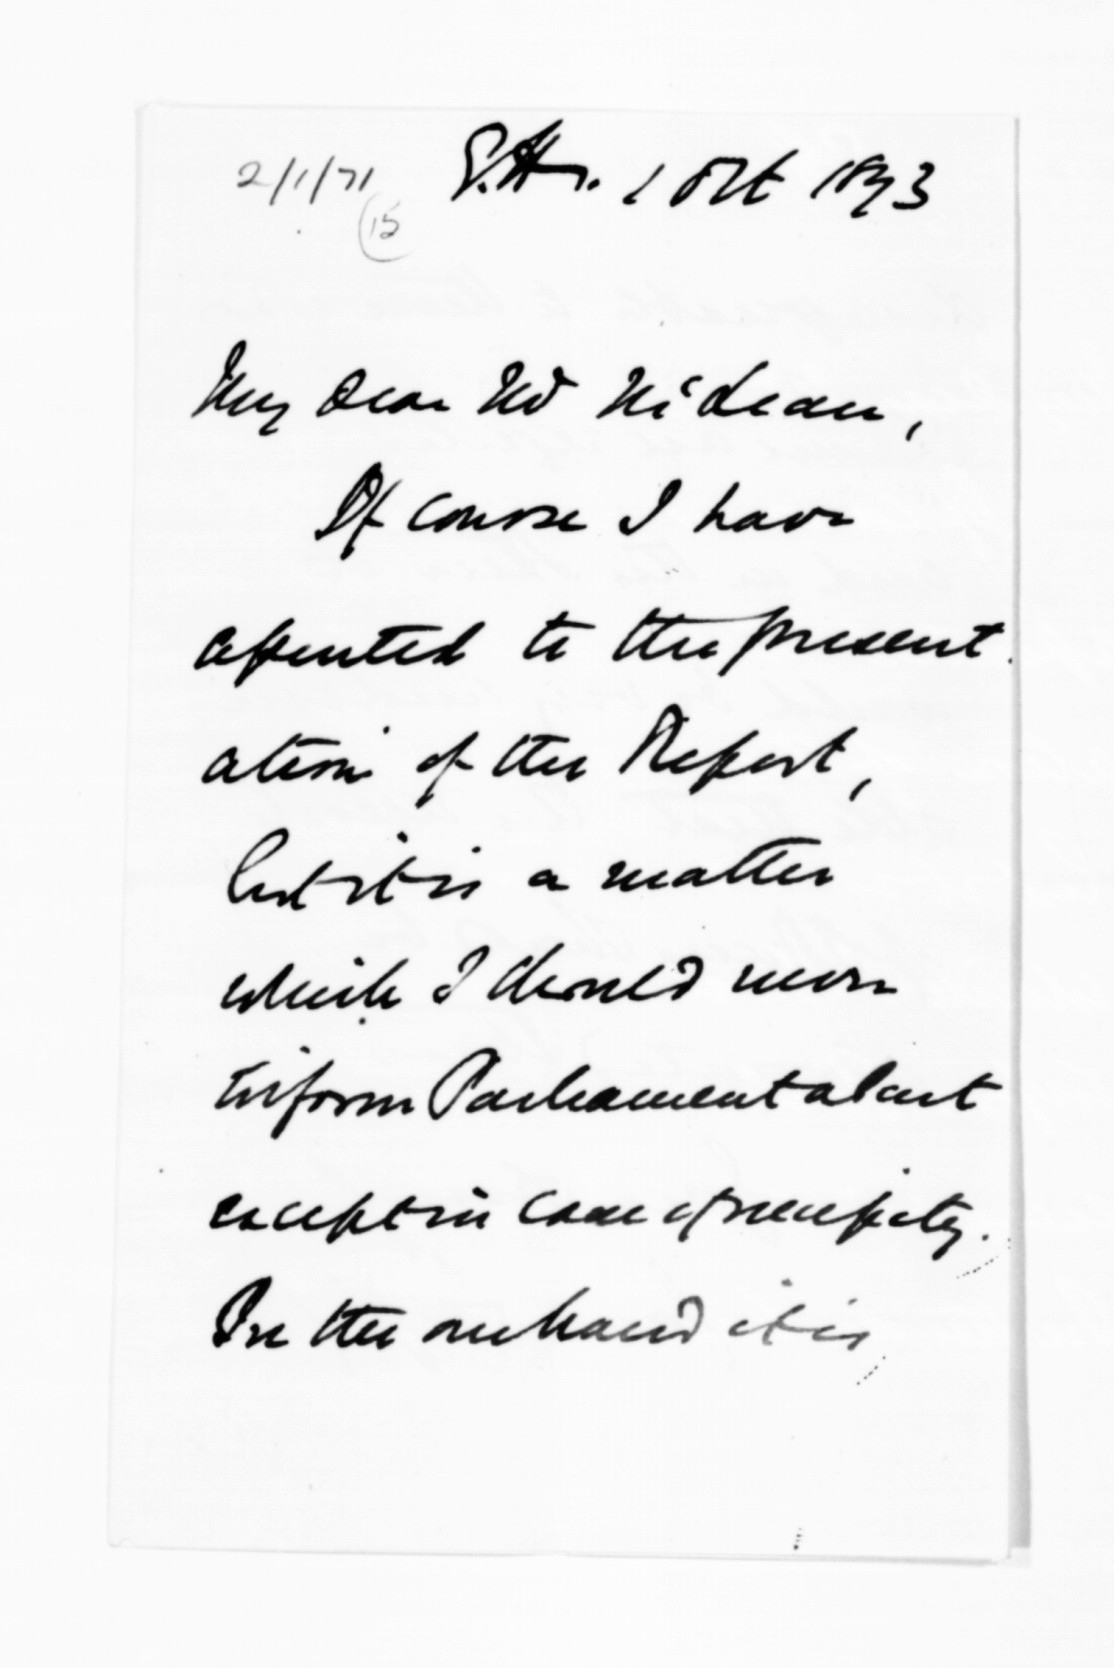 2/1/71
(15)
G.H. 1 Oct 1873
My Dear Mr McLean,
Of course I have
assented to the present
ation of the Report,
but it is a matter
which I should never
inform Parliament about
except in case of necessity.
On the one hand it is